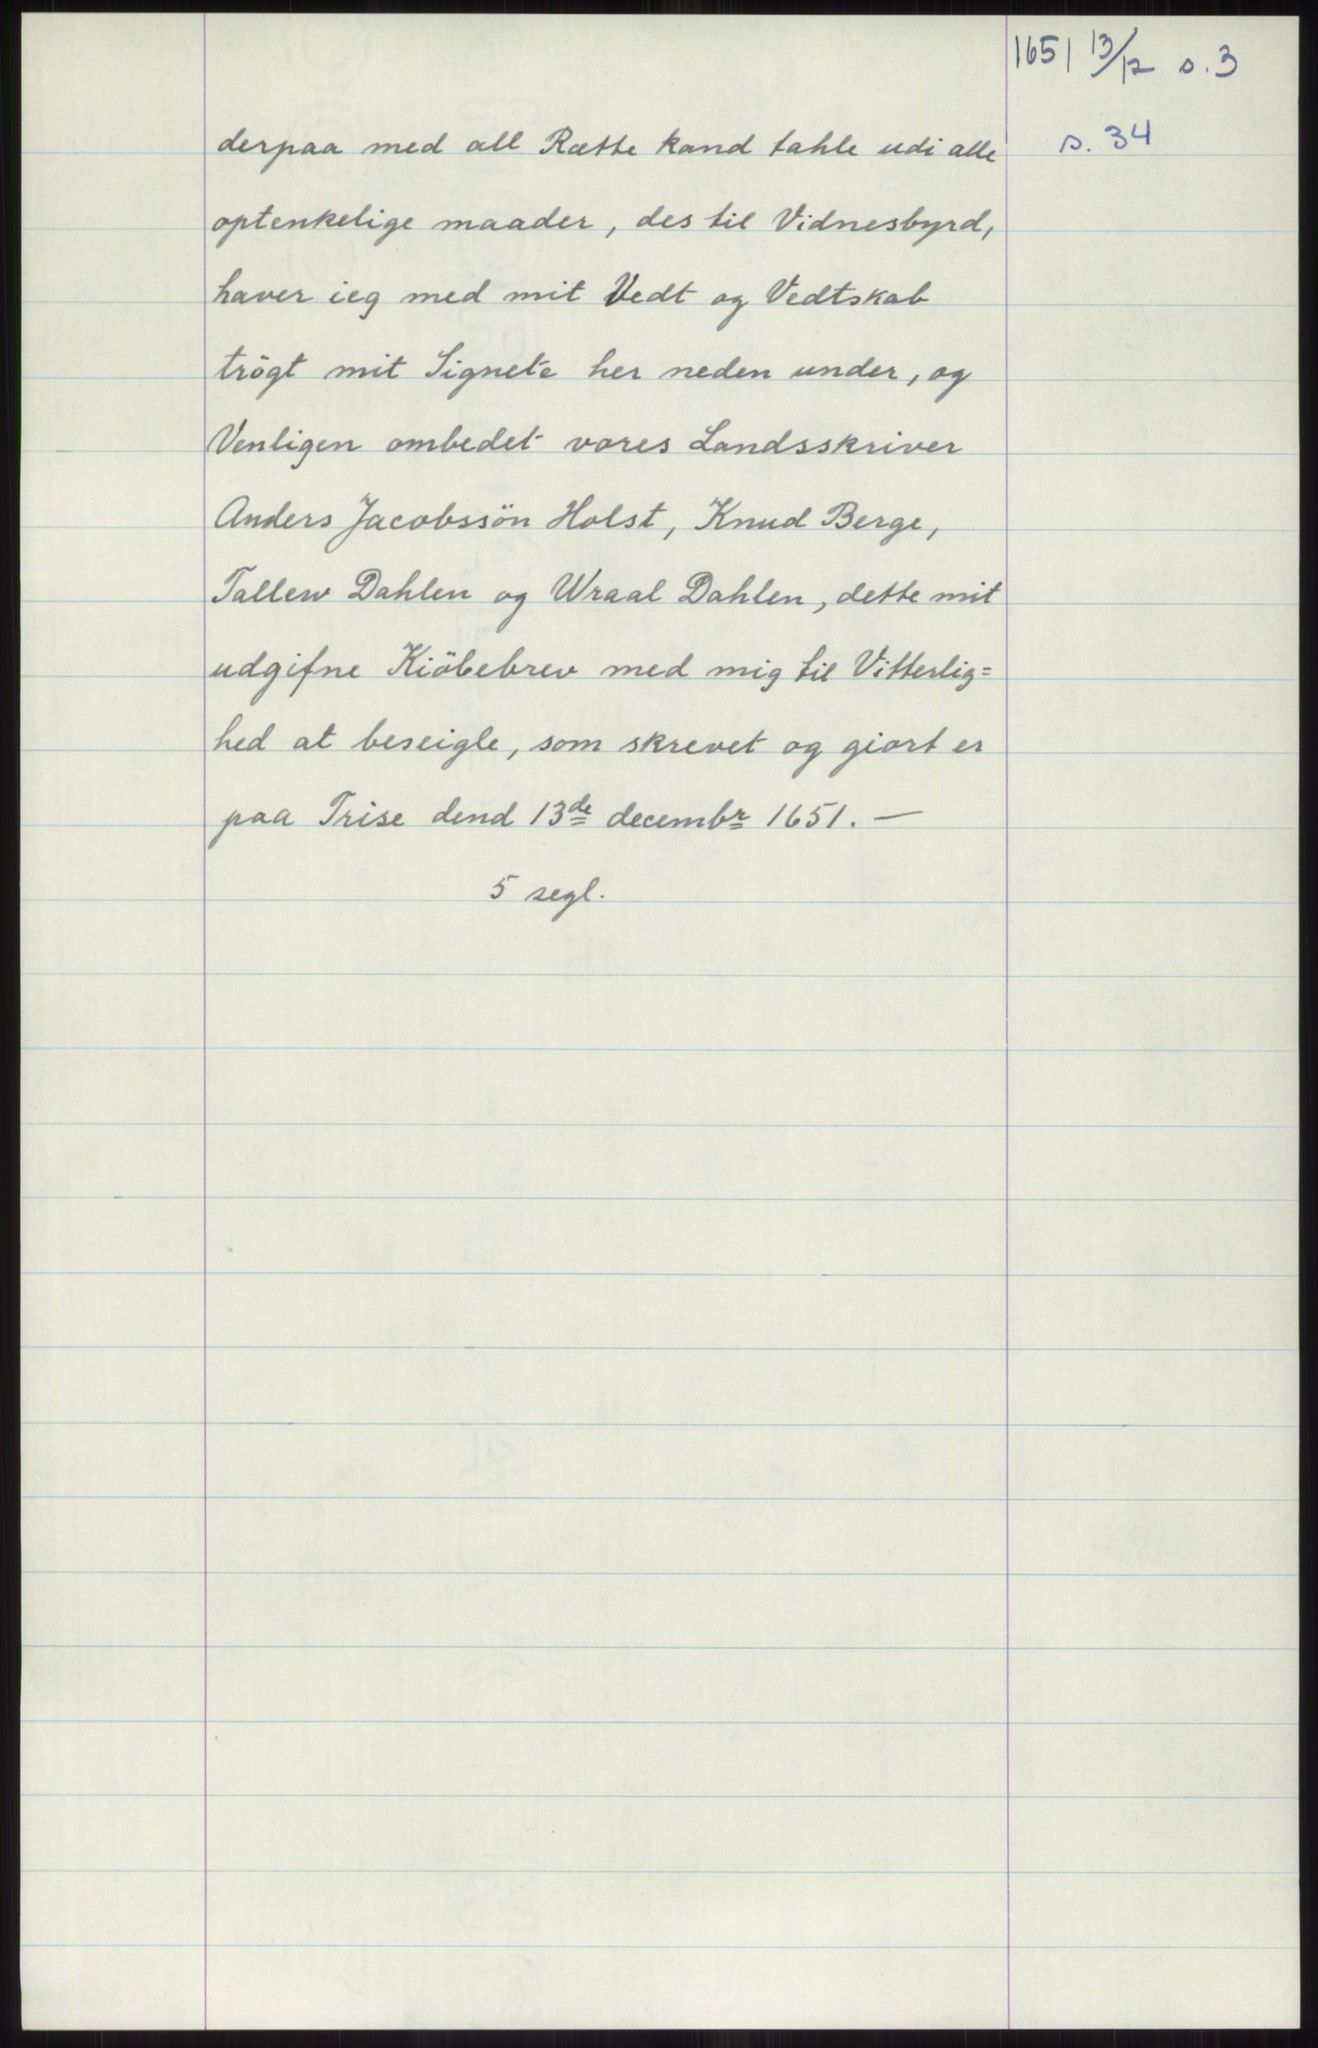 1651 13/12 s. 3
s. 34
derpaa med all Rætte kand tahle udi alle
optenkelige maader, des til Vidnesbyrd,
haver ieg med mit Vedt og Vedtskab
trögt mit Signete her neden under, og
Venligen ombedet vores Landsskriver
Anders Jacobssön Holst, Knud Berge,
Tallew Dahlen og Wraal Dahlen, dette mit
udgifne Kiöbebrev med mig til Vitterlig=
hed at beseigle, som skrevet og giort er
paa Trise dend 13de decembr 1651. —
5 segl.